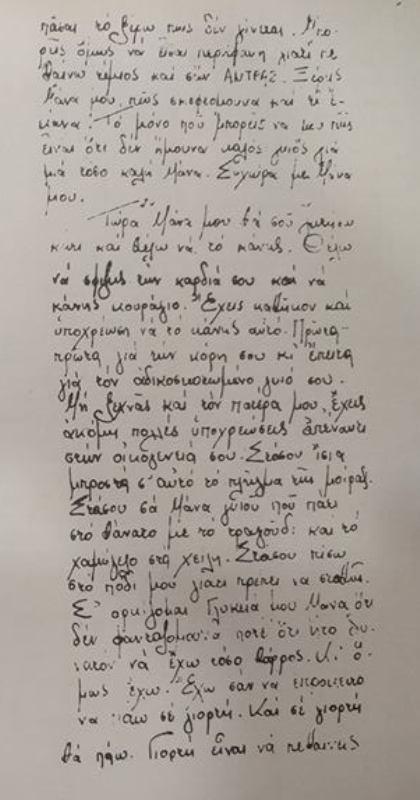 πᾶσαι τό ξέρω πώς δέν γίνεται. Μπο-
ρεῖς ὅμως νά εἶσαι περήφανη γιατί πε-
θαίνω τίμιος καί σάν ΑΝΤΡΑΣ. Ξέρεις
Μάνα μου πῶς σκεφτόμουνα καί τί ἔ-
κανα. Τό μόνο πού μπορεῖς νά πεῖς
εἶναι ὅτι δέν ἤμουνα καλός γυιός γιά
μιά τόσο καλή Μάνα. Συγχώρα με Μάνα
μου.
Τώρα Μάνα μου θά σοῦ ζητήσω
κάτι καί θέλω νά τό κάνης. Θέλω
νά σφίξης τήν καρδιά σου καί νά
κάνης κουράγιο. Ἔχεις καθῆκον καί
ὑποχρέωση νά τό κάνης αὐτό. Πρῶτα-
πρῶτα γιά τήν κόρη σου κι' ἔπειτα
γιά τόν ἀδικοσκοτωμένο γυιό σου.
Μή ξεχνᾶς καί τόν πατέρα μου, ἔχεις
ἀκόμη πολλές ὑποχρεώσεις ἀπέναντι
στήν οἰκογένειά σου. Στάσου ἴσια
μπροστά σ' αὐτό τό πλῆγμα τῆς μοίρας.
Στάσου σά Μάνα γυιοῦ πού πάει
στό θάνατο μέ τό τραγούδι καί τό
χαμόγελο στά χείλη. Στάσου πίσω
στό πόδι μου γιατί πρέπει νά σταθῆς.
Σ' ὁρκίζομαι Γλυκειά μου Μάνα ὅτι
δέν φανταζόμουνα ποτέ ὅτι ἦτο δυ-
νατόν νά ἔχω τόσο θάρρος. Κι' ὅ-
μως ἔχω. Ἔχω σάν νά ἑτοιμάζο
νά πάω σέ γιορτή. Καί σέ γιορτή
θά πάω. Γιορτή εἶναι νά πεθαίνης